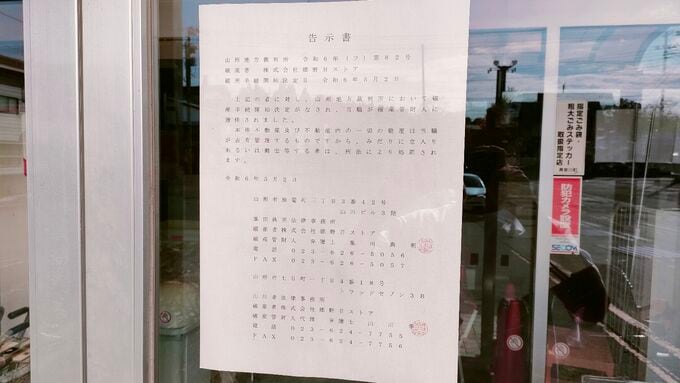 告示書
山形地方裁判所 令和6年(フ)第82号
破産者 株式会社 ストア
破産手続開始決定日 令和6年5月2日
上記の者に対し、山形地方裁判所において破
産手続開始決定がなされ、当職が破産管財人に
選任されました。
本件不動産及び不動産内の一切の動産は当職
が占有管理するものですから、みだりに立入り
あるいは搬出等する者は、刑法により処罰され
ます。
令和6年5月2日
山形市 町二丁目3番42号
山川ビル3階
法律事務所
破産者株式会社 ストア
破産管財人 弁護士
電話 023-626-5056
FAX 023-626-5057
山形市七日町一丁目4番18号
トラッドセブン3B
法律事務所
破産者株式会社 ストア
破産管財人代理 弁護士
電話 023-624-7755
FAX 023-624-7756
指定ごみ袋・
粗大ごみステッカー
取扱指定店
防犯カメラ
設置
SECOM